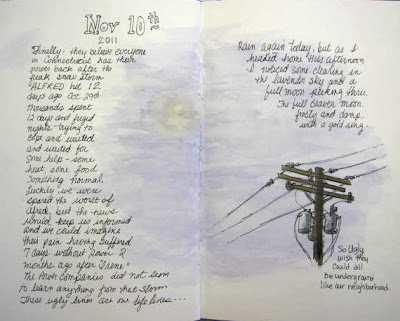 Nov 10th
2011
Finally - they believe everyone
in Connecticut has their
power back after the
freak snow storm
"ALFRED hit 12
days ago Oct 29th
Thousands spent
12 days and frigid
nights trying to
cope and waited
and waited for
some help - some
heat, some food
Something normal.
Luckily we were
spared the worst of
Alfred, but the news
would keep us informed
and we could imagine
their pain having suffered
7 days without power 2
months ago after "Irene"
The Power Companies did not seem
to learn anything from that storm
These ugly lines are our life lines...
Rain again today, but as I
headed home this afternoon
I noticed some clearing in
the lavender sky and a
full moon peeking thru.
The full beaver moon
frosty and damp
with a gold ring.
So Ugly
wish they
could all
be underground
like our neighborhood.